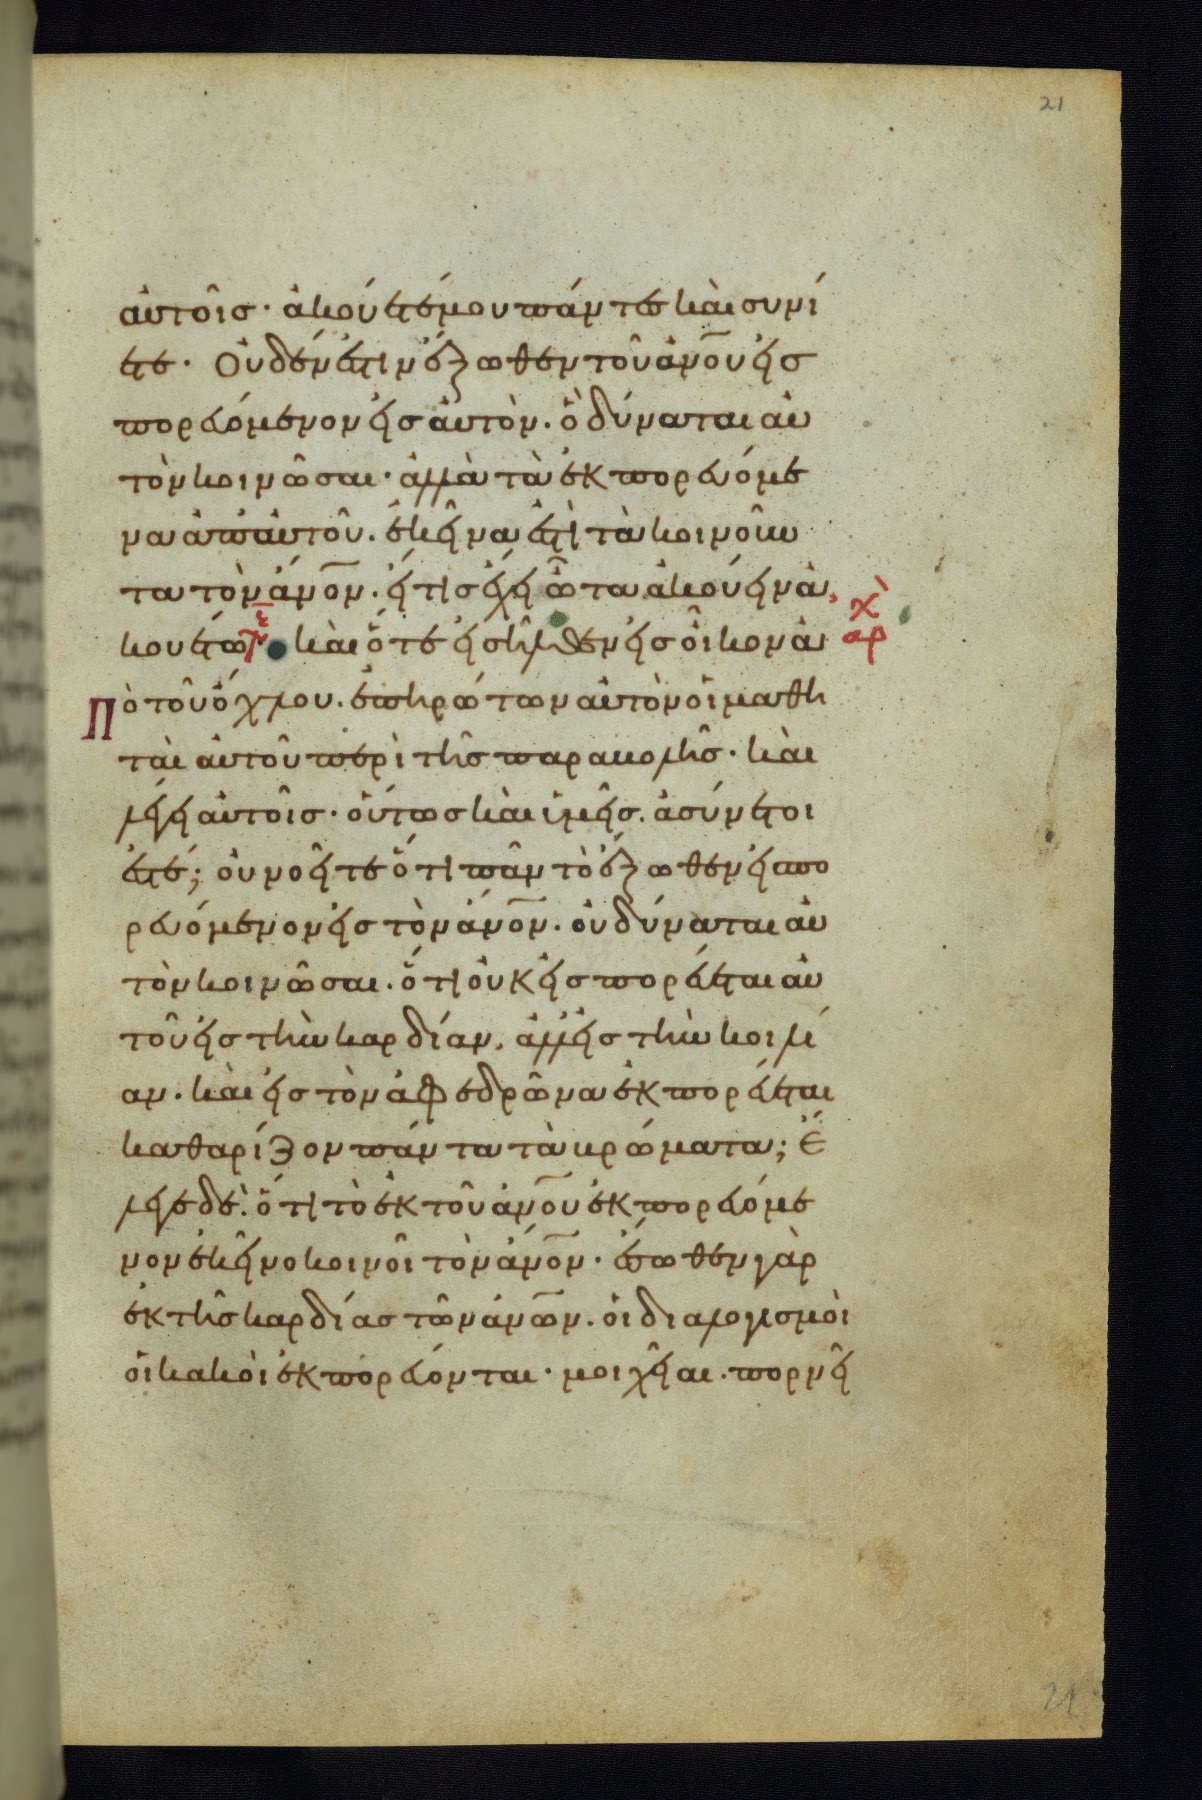 21
αὐτοῖς· ἀκούετέ μου πάντες καὶ συνί
ετε· Οὐδέν ἐστιν ἔξωθεν τοῦ ἀν̅ο̅υ̅ εἰσ
πορευόμενον εἰς αὐτὸν. ὃ δύναται αὐ
τὸν κοινῶσαι· ἀλλὰ τὰ ἐκπορευόμε
να ἀπ αὐτοῦ. ἐκεῖνα ἐστὶ τὰ κοινοῦν
τα τὸν ἄν̅ο̅ν̅. εἴ τις ἔχει ὦτα ἀκούειν ἀ
κουέτω καὶ ὅτε εἰσῆλθεν εἰς οἶκον ἀ
Πὸ τοῦ ὄχλου. ἐπηρώτων αὐτὸν οἱ μαθη
ταὶ αὐτοῦ περὶ τῆς παραβολῆς. καὶ
λέγει αὐτοῖς· οὕτως καὶ ὑμεῖς. ἀσύνετοι
ἐστέ; οὐ νοεῖτε ὅτι πᾶν τὸ ἔξωθεν εἰσπο
ρευόμενον εἰς τὸν ἄν̅ο̅ν̅. οὐ δύναται αὐ
τὸν κοινῶσαι. ὅτι οὐκ εἰσπορεύεται αὐ
τοῦ εἰς τὴν καρδίαν. ἀλλ εἰς τὴν κοιλί
αν. καὶ εἰς τὸν ἀφεδρῶνα ἐκπορεύεται
καθαρίζον πάντα τὰ βρώματα; Ἔ
λεγε δὲ. ὅτι τὸ ἐκ τοῦ ἀν̅ο̅υ̅ ἐκπορευόμε
νον ἐκεῖνο κοινοῖ τὸν ἄν̅ο̅ν̅. ἔσωθεν γὰρ
ἐκ τῆς καρδίας τῶν ἀν̅ω̅ν̅. οἱ διαλογισμοὶ
οἱ κακοὶ ἐκπορεύονται· μοιχεῖαι. πορνεῖ
21